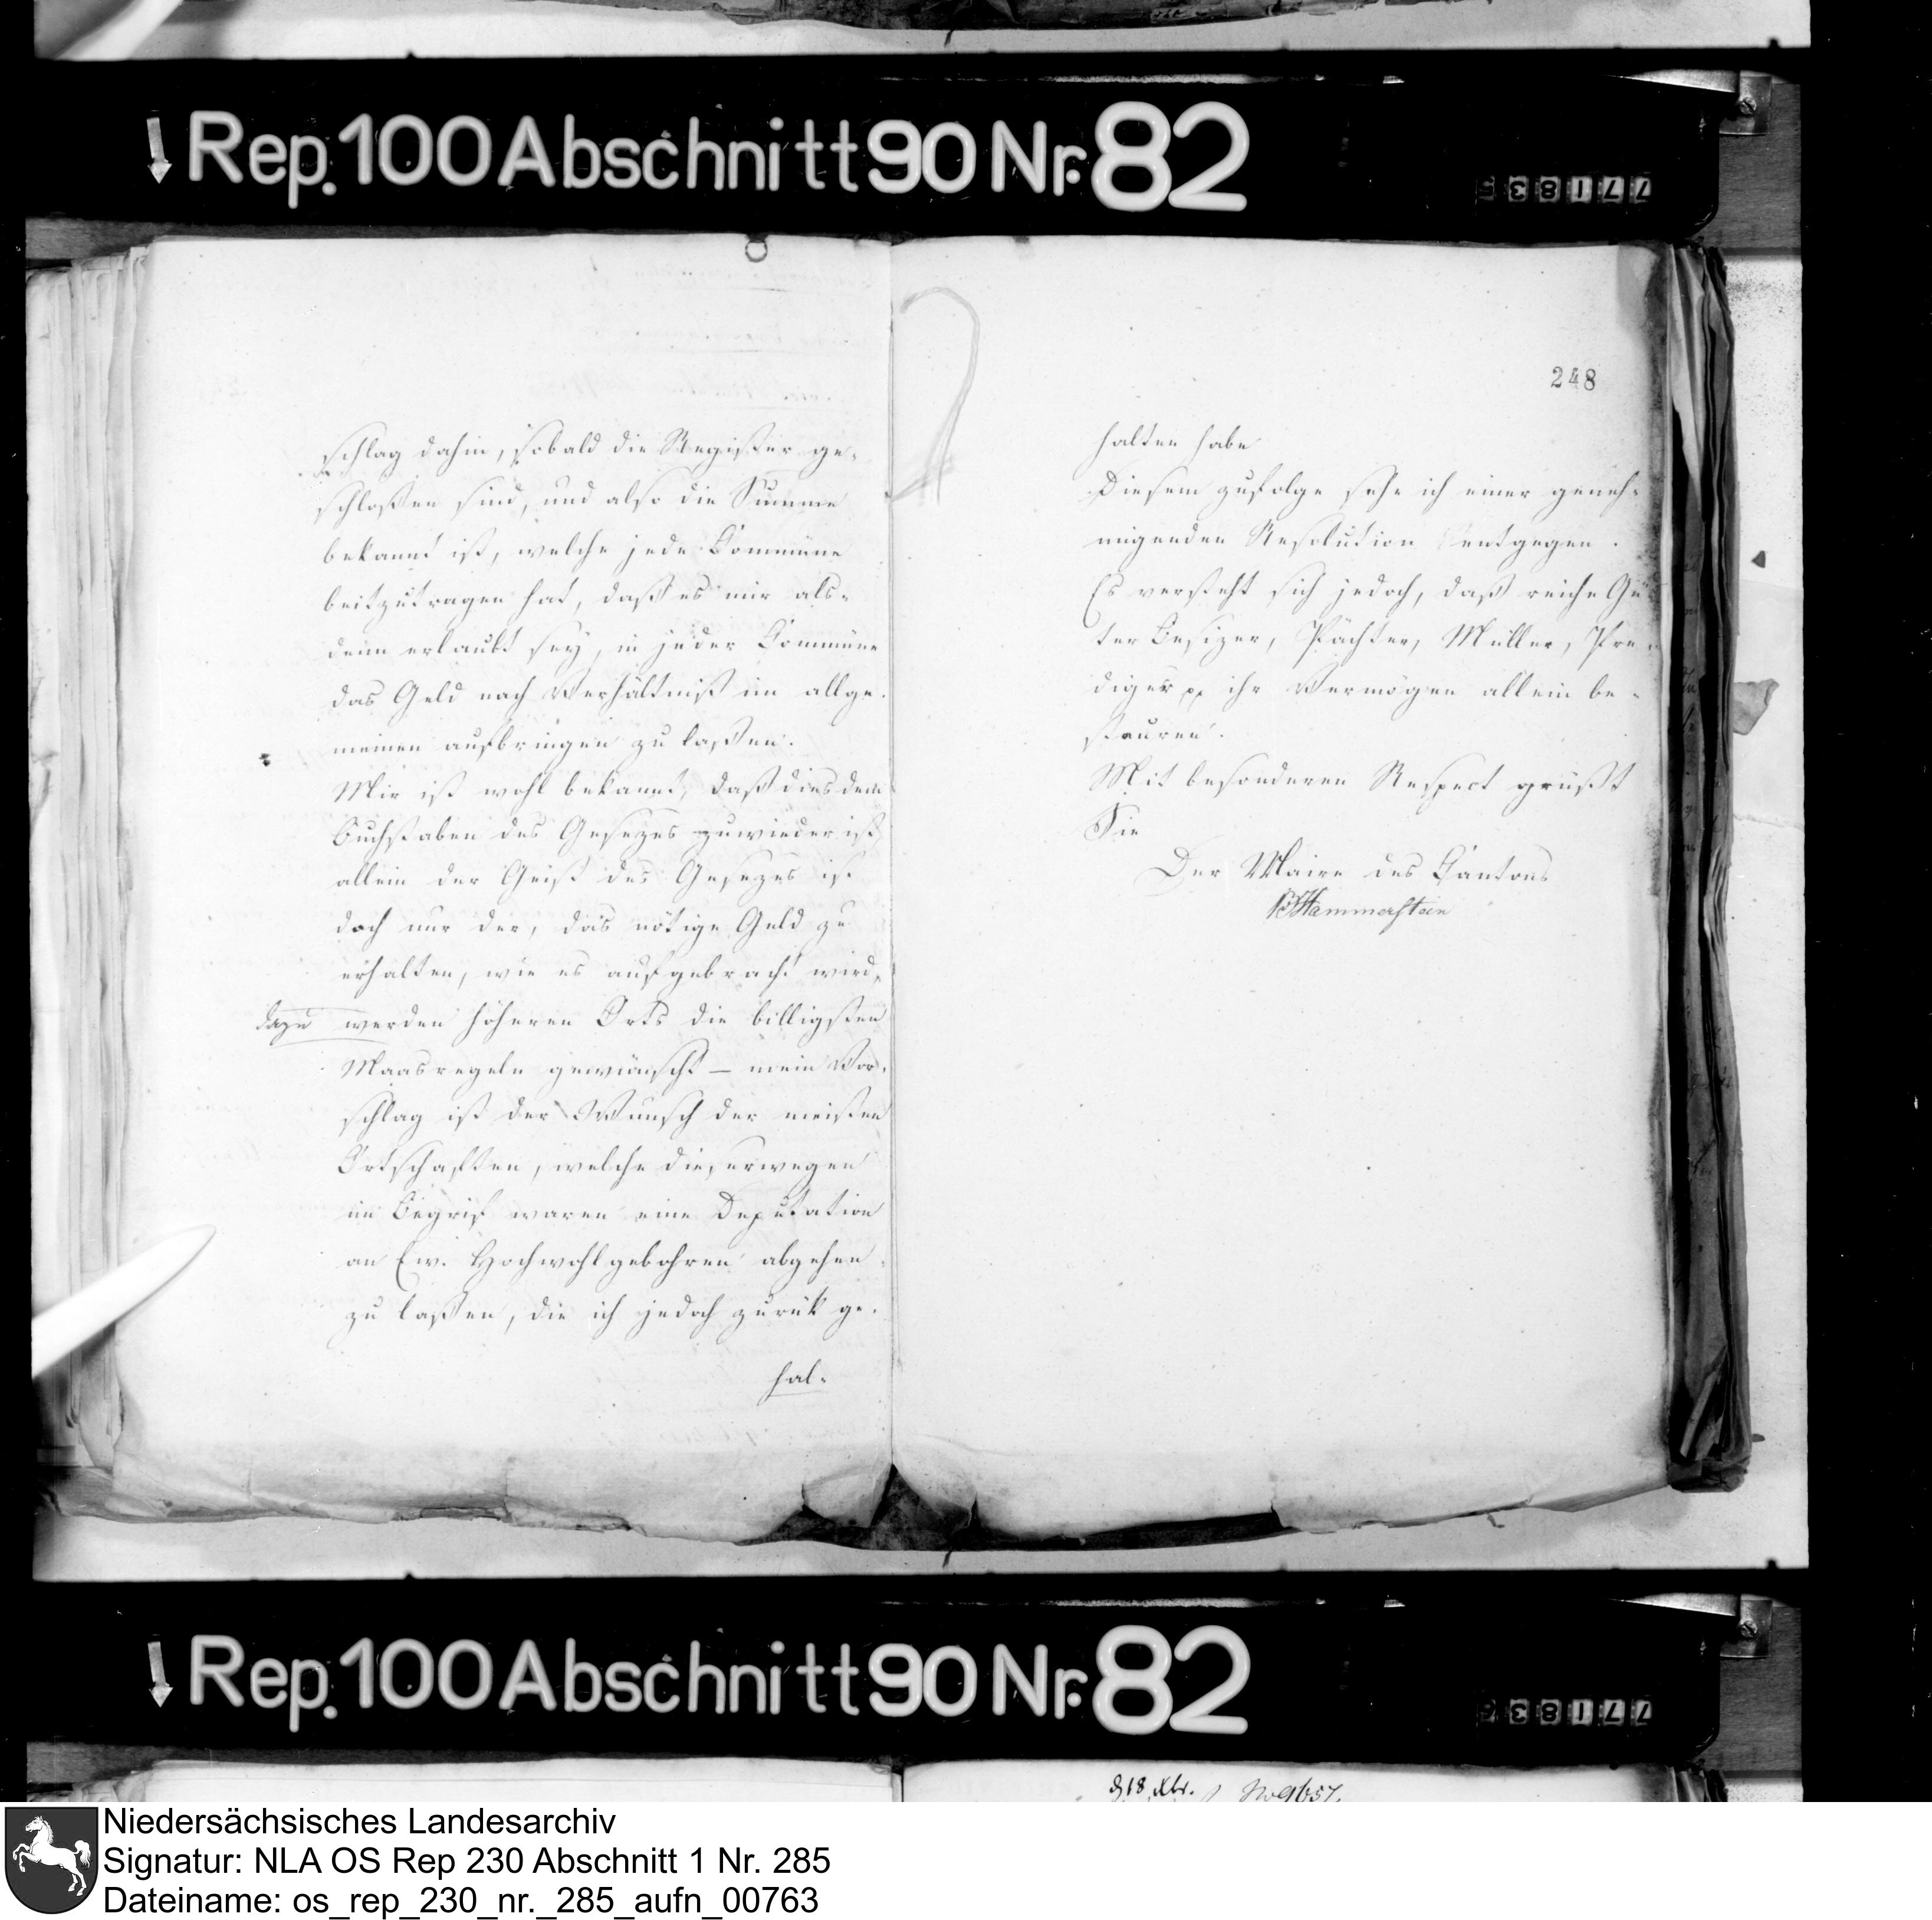 Rep. 100 Abschnitt 90 Nr. 82
771835
schlag dahin, sobald die Register ge-
schloßen sind, und also die Summe
bekannt ist, welche jede Commüne
beitzutragen hat, daß es mir als-
denn erlaubt sey, in jeder Commüne
das Geld nach Verhältniß im allge-
meinen aufbringen zu laßen.
Mir ist wohl bekannt, daß dies dem
Buchstaben des Gesezes zuwieder ist
allein der Geist des Gesezes ist
doch nur der, das nötige Geld zu
erhalten, wie es aufgebracht wird,
dazu werden höheren Orts die billigsten
Maasregeln gewünscht – mein Vor-
schlag ist der Wunsch der meisten
Ortschaften, welche dieserwegen
im Begrif waren eine Deputation
an Ew. Hochwohlgebohren abgehen
zu laßen, die ich jedoch zurük ge-
hal-
248
halten habe
Diesem zufolge sehe ich einer geneh-
migenden Resolution entgegen.
Es versteht sich jedoch, daß reiche Gü
ter Besizer, Pächter, Müller, Pre-
diger pp ihr Vermögen allein be-
steuren.
Mit besonderen Respect grüßt
Sie
Der Maire des Cantons
Hammerstein
Rep. 100 Abschnitt 90 Nr. 82
77183
Niedersächsisches Landesarchiv
Signatur: NLA OS Rep 230 Abschnitt 1 Nr. 285
Dateiname: os_rep_230_nr._285_aufn_00763